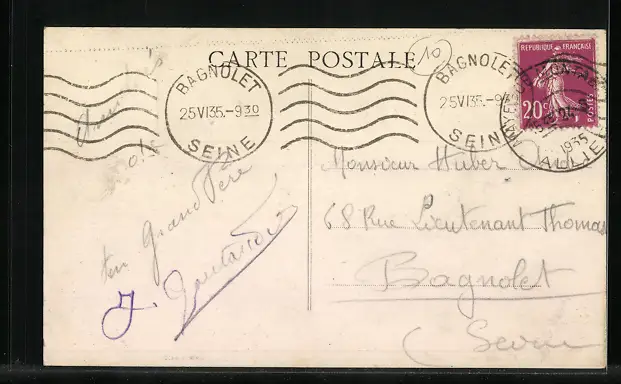 CARTE POSTALE
10
BAGNOLET
25 VI 35.-9 30
SEINE
BAGNOLET
25 VI 35.-9
SEINE
REPUBLIQUE FRANÇAISE
20c
POSTES
1935
ALLIER
Monsieur Huber
68 Rue Lieutenant Thomas
Bagnolet
(Seine
ton Grand Père
J.